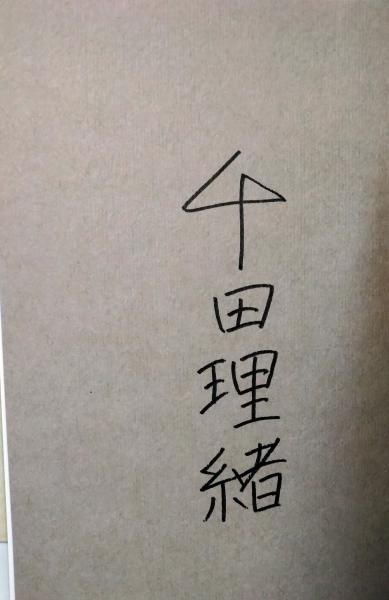 千田理緒